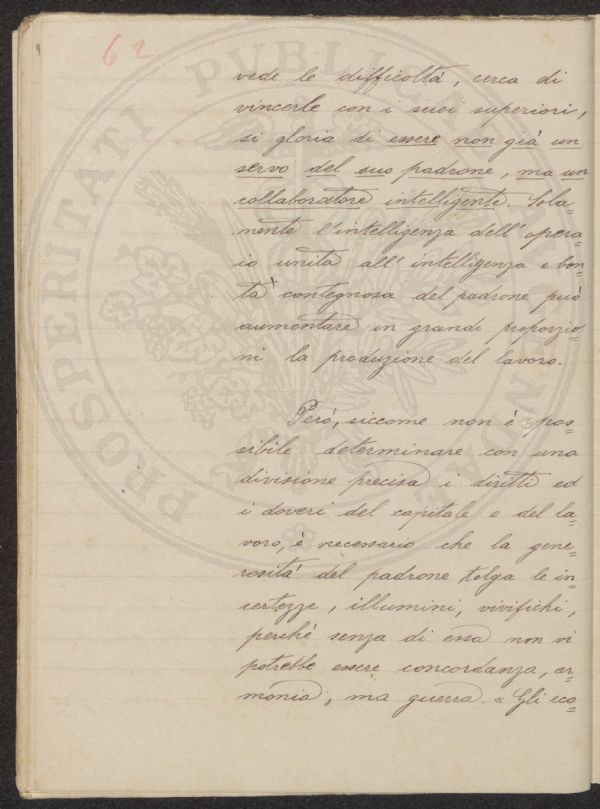 62
vede le difficoltà, cerca di
vincerle con i suoi superiori,
si gloria di essere non già un
servo del suo padrone, ma un
collaboratore intelligente. Sola=
mente l'intelligenza dell'opera=
io unita all'intelligenza e bon=
tà contegnosa del padrone può
aumentare in grandi proporzio=
ni la produzione del lavoro.
Però, siccome non è pos=
sibile determinare con una
divisione precisa i diritti ed
i doveri del capitale e del la=
voro, è necessario che la gene=
rosità del padrone tolga le in=
certezze, illumini, vivifichi,
perchè senza di essa non vi
potrebbe essere concordanza, ar=
monia, ma guerra. « Gli eco=
PROSPERITATI PVBLICAE AVGENDAE